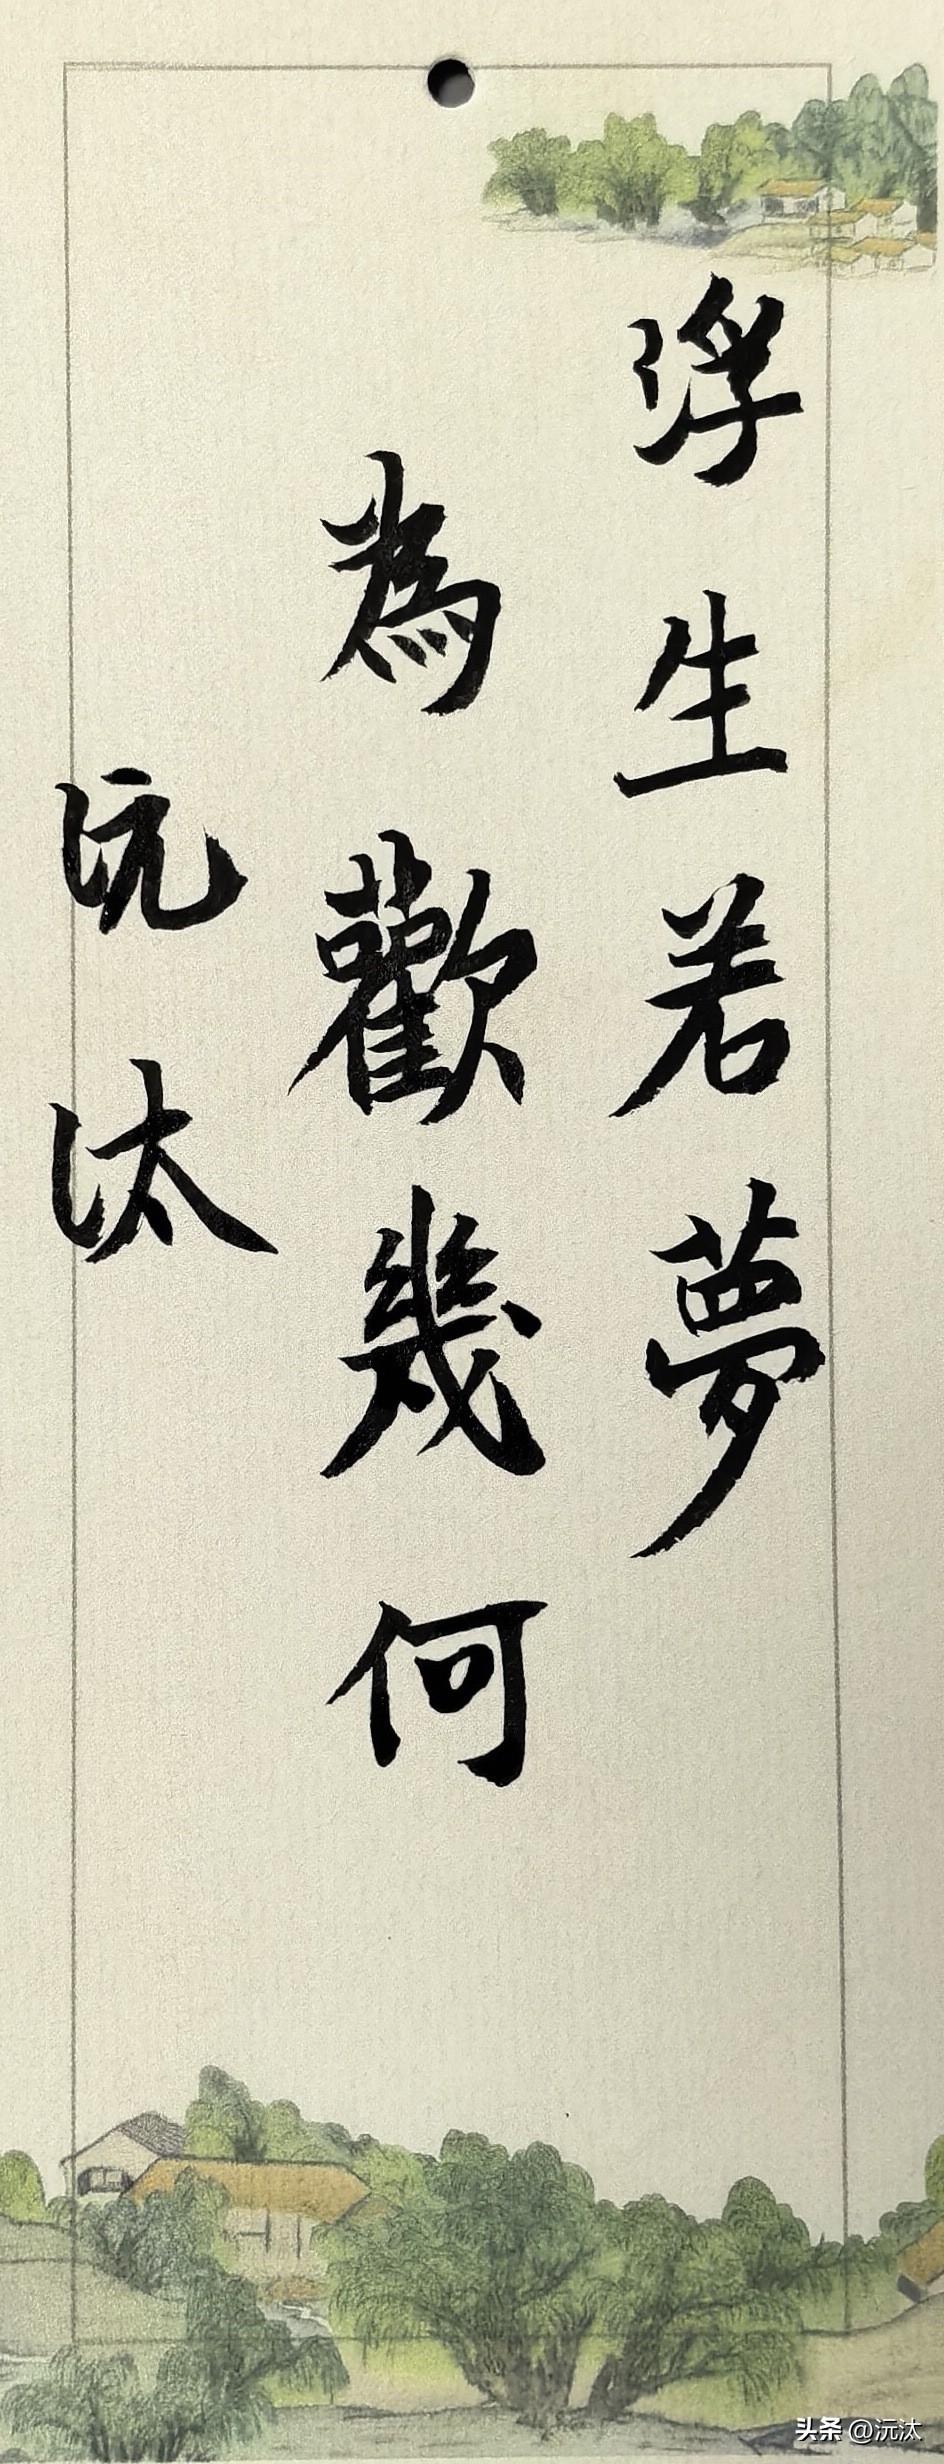 浮生若夢
為歡幾何
沅汰
头条 @沅汰